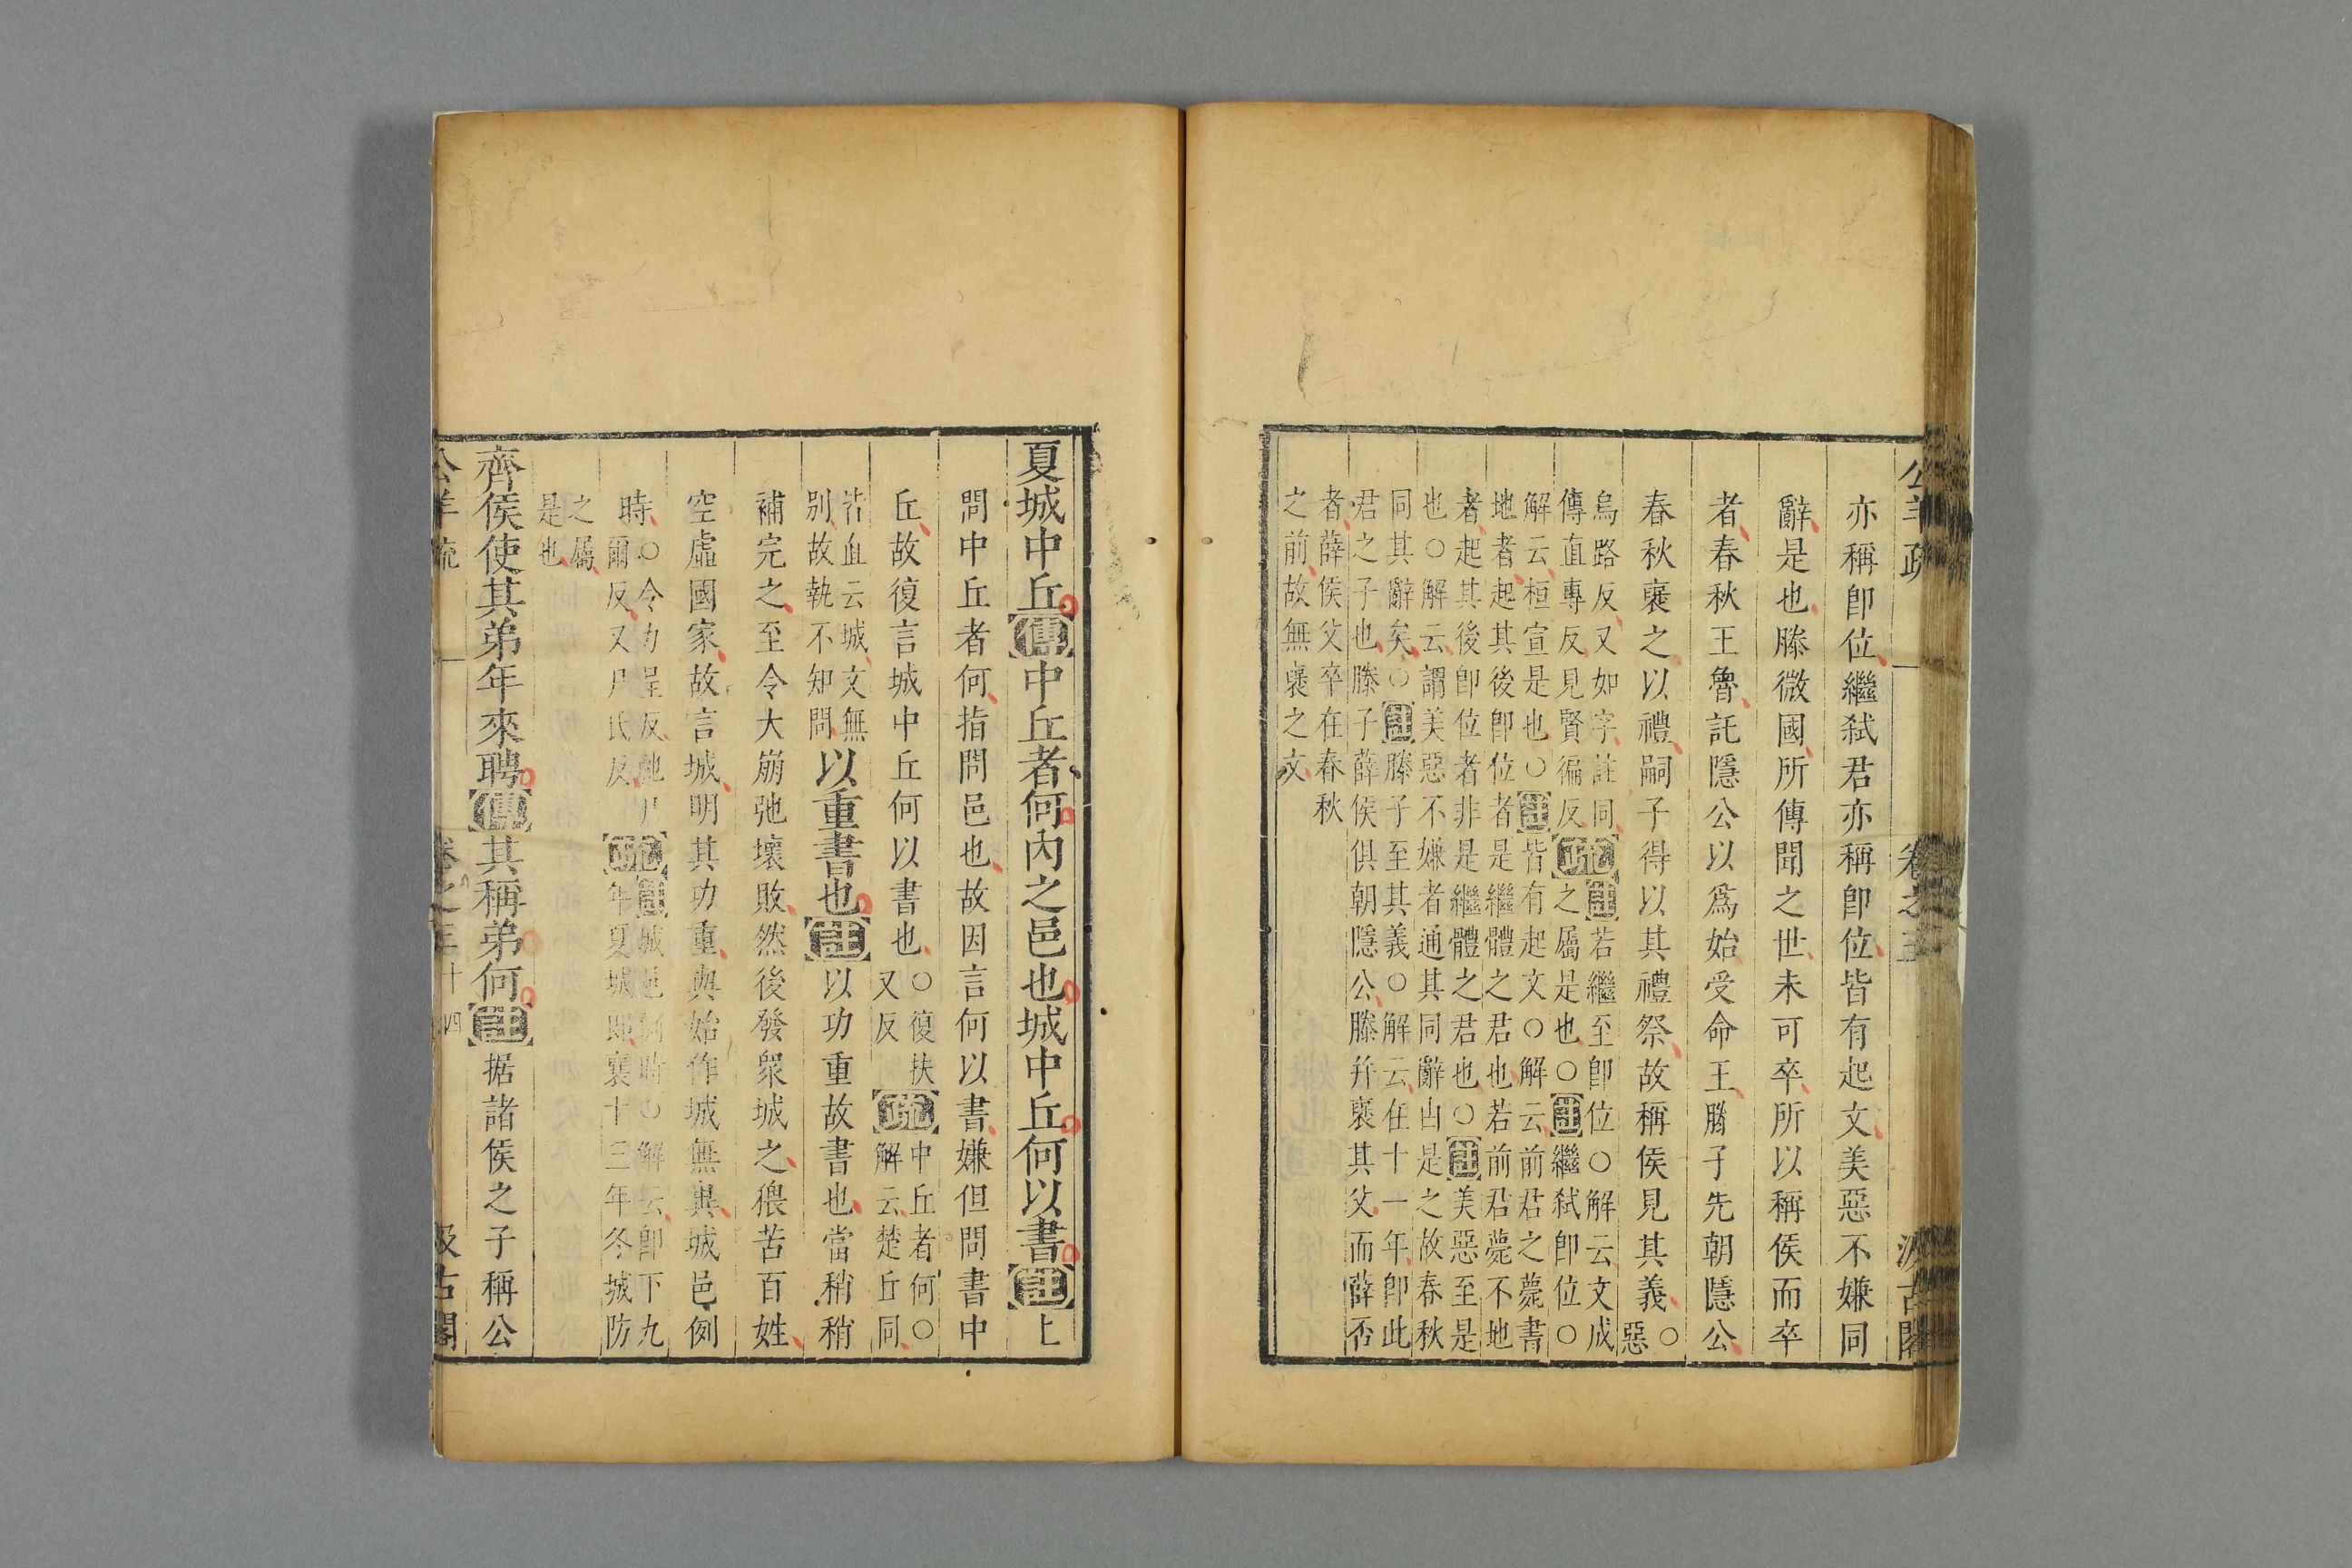 公羊疏 一 卷之三 汲古閣
亦稱卽位繼弑君亦稱卽位皆有起文美惡不嫌同
辭是也滕微國所傳聞之世未可卒所以稱侯而卒
者春秋王魯託隱公以爲始受命王滕子先朝隱公
春秋襃之以禮嗣子得以其禮祭故稱侯見其義○惡
烏路反又如字註同
傳直專反見賢徧反
疏
註若繼至卽位○解云文成
之屬是也○註繼弑卽位○
解云桓宣是也○註皆有起文○解云前君之薨書
地者起其後卽位者是繼體之君也若前君薨不地
者起其後卽位者非是繼體之君也○註美惡至是
也○解云謂美惡不嫌者通其同辭由是之故春秋
同其辭矣○註滕子至其義○解云在十一年卽此
君之子也滕子薛侯俱朝隱公滕并襃其父而薛否
者薛侯父卒在春秋
之前故無襃之文
夏城中丘傳中丘者何內之邑也城中丘何以書註上
問中丘者何指問邑也故因言何以書嫌但問書中
丘故復言城中丘何以書也
○復扶
又反
疏
中丘者何○
解云楚丘同
若直云城文無
別故執不知問
以重書也註以功重故書也當稍稍
補完之至令大崩弛壞敗然後發衆城之猥苦百姓
空虛國家故言城明其功重與始作城無異城邑例
時
○令力呈反弛尸
爾反又尸氏反
疏
註城邑例時○解云卽下九
年夏城郎襄十三年冬城防
之屬
是也
齊侯使其弟年來聘傳其稱弟何註据諸侯之子稱公
公羊疏 一 卷之三 十四 汲古閣